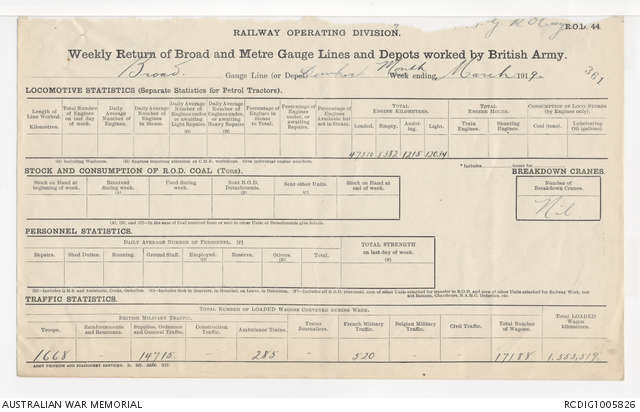 R.O.D. 44.
RAILWAY OPERATING DIVISION.
Weekly Return of Broad and Metre Gauge Lines and Depots worked by British Army.
Broad Gauge Line (or Depot) Month Week ending, March 1919. 361
LOCOMOTIVE STATISTICS (Separate Statistics for Petrol Tractors).
Length of Line Worked. Kilometres.
Total Number of Engines on last day of week.
Daily Average Number of Engines.
Daily Average Number of Engines in Steam.
Daily Average Number of Engines under, or awaiting Light Repairs. (A)
Daily Average Number of Engines under, or awaiting Heavy Repairs. (B)
Percentage of Engines in Steam to Total.
Percentage of Engines under, or awaiting Repairs.
Percentage of Engines Available but not in Steam.
TOTAL ENGINE KILOMETRES.
Loaded. Empty. Assisting. Light.
TOTAL ENGINE HOURS.
Train Engines. Shunting Engines.
CONSUMPTION OF LOCO STORES (by Engines only).
Coal (tons). Lubricating Oil (gallons).
47510 5382 1215 12014
(A) Including Washouts. (B) Engines requiring attention at C.M.E. workshops. Give individual engine numbers.
* Includes
STOCK AND CONSUMPTION OF R.O.D. COAL (Tons).
BREAKDOWN CRANES.
Stock on Hand at beginning of week.
Received during week.
Used during week.
Sent R.O.D. Detachments.
Sent other Units.
Stock on Hand at end of week.
Number of Breakdown Cranes.
Nil
PERSONNEL STATISTICS.
DAILY AVERAGE NUMBER OF PERSONNEL.
TOTAL STRENGTH on last day of week.
Repairs. Shed Duties. Running. Ground Staff. Employed. Reserve. Others. Total.
TRAFFIC STATISTICS.
TOTAL NUMBER OF LOADED WAGONS CONVEYED DURING WEEK.
Total LOADED Wagon kilometres.
BRITISH MILITARY TRAFFIC.
Troops.
Reinforcements and Remounts.
Supplies, Ordnance and General Traffic.
Construction Traffic.
Ambulance Trains.
Trains Journaliers.
French Military Traffic.
Belgian Military Traffic.
Civil Traffic.
Total Number of Wagons.
1668 - 14715 - 285 - 520 - - 17188 1,555,519
ARMY PRINTING AND STATIONERY SERVICES.
AUSTRALIAN WAR MEMORIAL RCDIG1005826